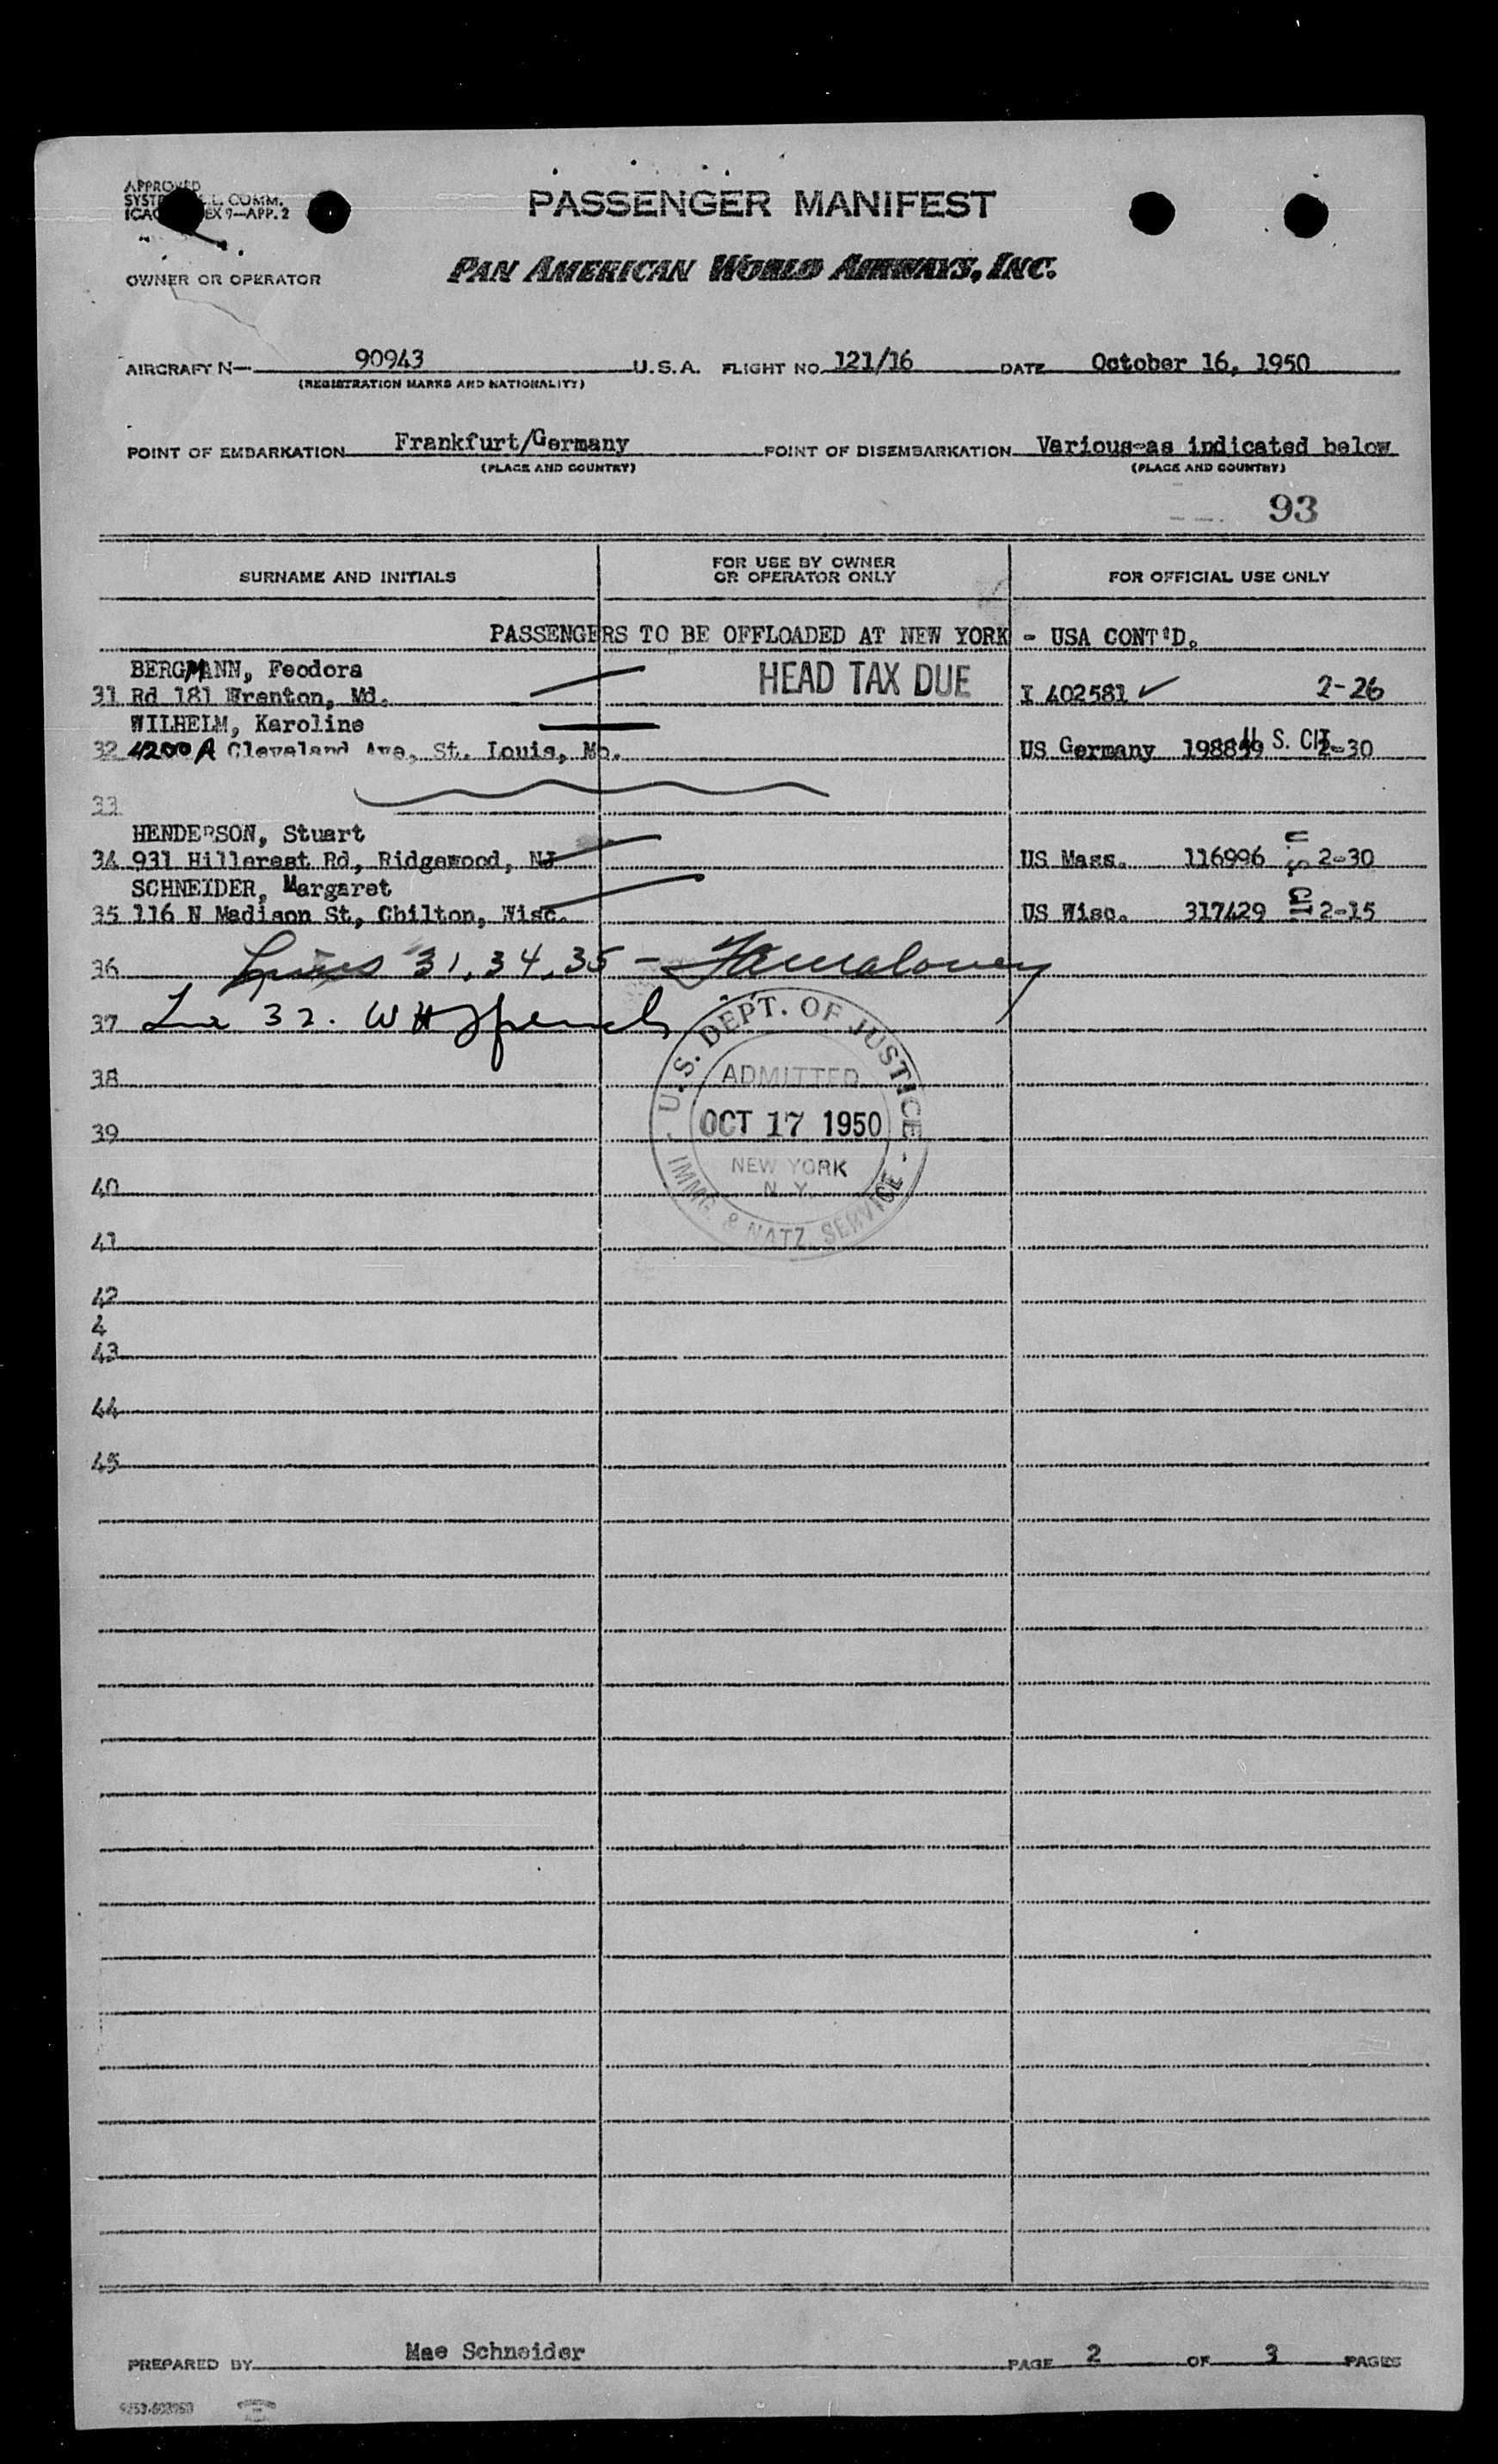 APPROVED
L. COMM.
EX 9—APP. 2
PASSENGER MANIFEST
OWNER OR OPERATOR
PAN AMERICAN WORLD AIRWAYS, INC.
AIRCRAFT N— 90943 U.S.A. FLIGHT NO. 121/16 DATE October 16, 1950
(REGISTRATION MARKS AND NATIONALITY)
POINT OF EMBARKATION Frankfurt/Germany POINT OF DISEMBARKATION Various-as indicated below
(PLACE AND COUNTRY) (PLACE AND COUNTRY)
93
SURNAME AND INITIALS FOR USE BY OWNER OR OPERATOR ONLY FOR OFFICIAL USE ONLY
PASSENGERS TO BE OFFLOADED AT NEW YORK - USA CONT'D.
BERGMANN, Feodora HEAD TAX DUE
31 Rd 181 Wrenton, Md. I 402581 ✓ 2-26
WILHELM, Karoline
32 4200 A Cleveland Ave, St. Louis, Mo. US Germany 198859 U.S. CIT 2-30
33
HENDERSON, Stuart
34 931 Hillcrest Rd, Ridgewood, NJ US Mass. 116996 2-30
SCHNEIDER, Margaret U.S. CIT
35 116 N Madison St, Chilton, Wisc. US Wisc. 317429 2-15
36 Lines 31, 34, 35 -
37 Line 32. W H
38
39
40
41
42
4
43
44
45
U.S. DEPT. OF JUSTICE
ADMITTED
OCT 17 1950
NEW YORK
N. Y.
IMMG. & NATZ. SERVICE
PREPARED BY Mae Schneider PAGE 2 OF 3 PAGES